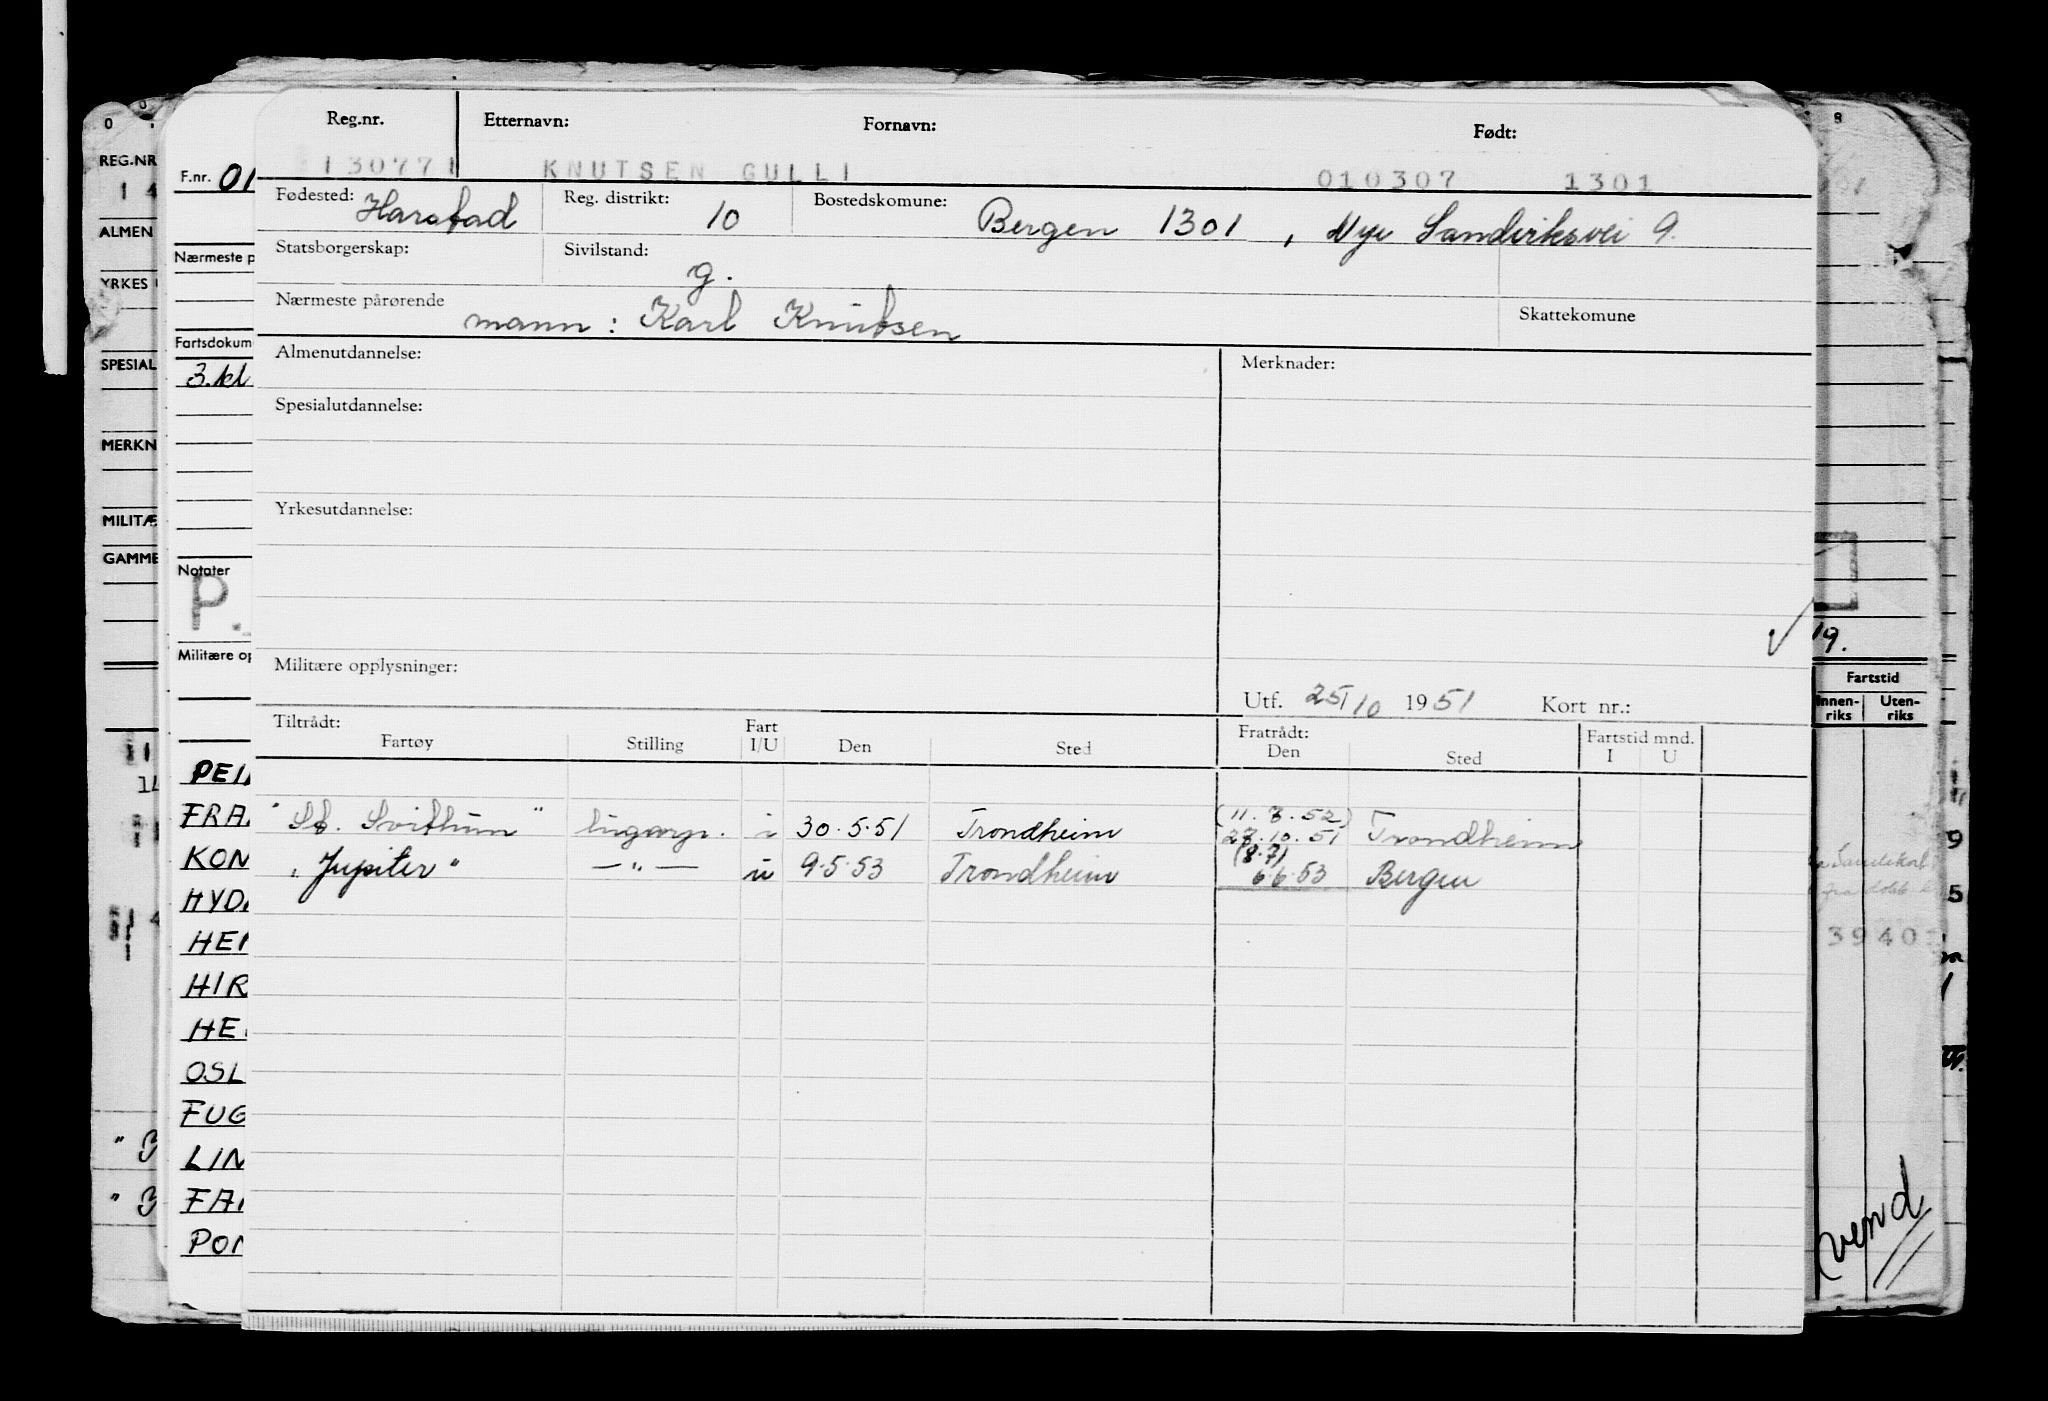 Reg.nr. Etternavn: Fornavn: Født:
130771 KNUTSEN GULLI 010307 1301
Fødested: Harstad Reg. distrikt: 10 Bostedskomune: Bergen 1301, Nye Sandviksvei 9.
Statsborgerskap: Sivilstand: g.
Nærmeste pårørende mann: Karl Knutsen Skattekomune
Almenutdannelse: Merknader:
Spesialutdannelse:
Yrkesutdannelse:
Militære opplysninger:
Utf. 25/10 1951 Kort nr.:
Tiltrådt: Fratrådt:
Fartøy Stilling Fart I/U Den Sted Den Sted Fartstid mnd. I U
(11.3.52)
"St. Svithun" lugarp. i 30.5.51 Trondheim 27.10.51 Trondheim
(8.7)
"Jupiter" —"— u 9.5.53 Trondheim 6.6.53 Bergen
F.nr. 01
Nærmeste p
Fartsdokum
3.kl
Notater
P.
Militære op
PEL
FRA
KON
HYD
HEN
HIR
HE
OSL
FUG
LIN
FAI
PON
REG.NR
1 4
ALMEN
YRKES
SPESIAL
MERKN
MILITÆ
GAMME
" 3
" 3
19.
Fartstid
Innen-riks Uten-riks
9
5
3940
vend